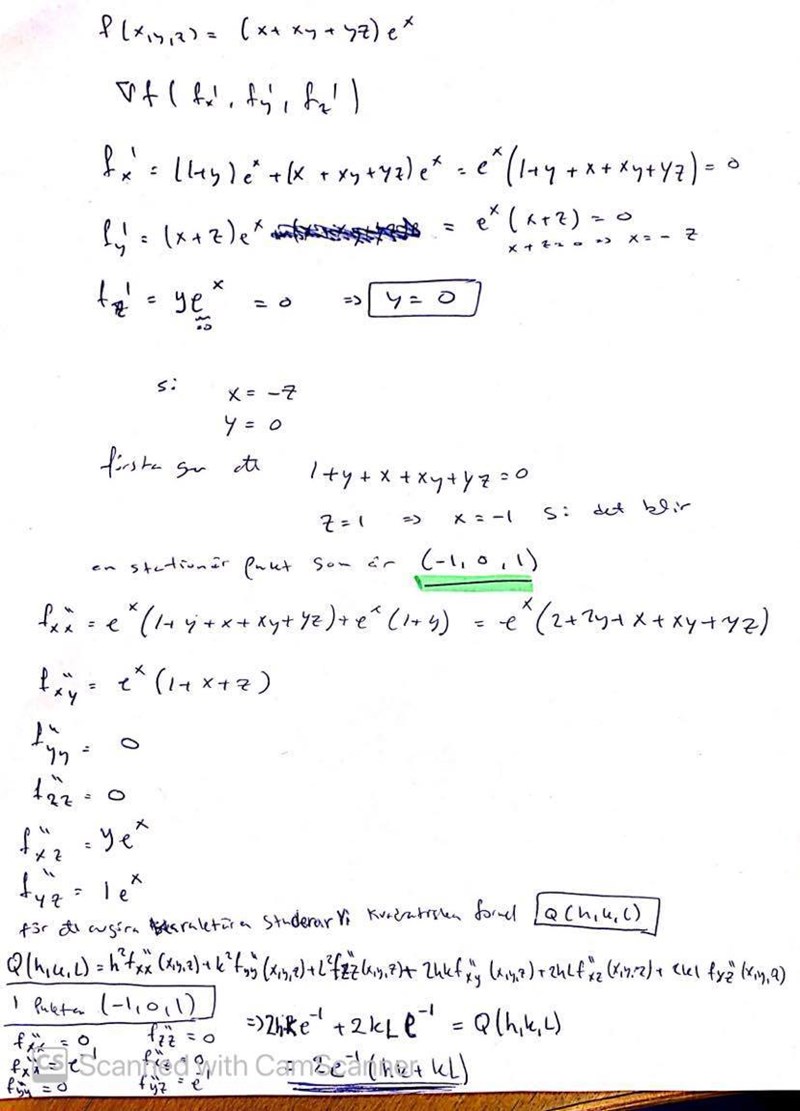 f(x,y,z) = (x+xy+yz)e^x
∇f(f'x, f'y, f'z)
f'x = (1+y)e^x + (x + xy+yz)e^x = e^x(1+y+x+xy+yz) = 0
f'y = (x+z)e^x = e^x(x+z) = 0
x+z=0 => x=-z
f'z = ye^x = 0 => y = 0
≠0
så x = -z
y = 0
första ger att 1+y+x+xy+yz=0
z=1 => x=-1 så det blir
en stationär punkt som är (-1, 0, 1)
f''xx = e^x(1+y+x+xy+yz)+e^x(1+y) = e^x(2+2y+x+xy+yz)
f''xy = e^x(1+x+z)
f''yy = 0
f''zz = 0
f''xz = ye^x
f''yz = 1e^x
för att avgöra karaktären studerar vi kvadratiska formel Q(h,k,l)
Q(h,k,L) = h²f''xx(x,y,z)+k²f''yy(x,y,z)+L²f''zz(x,y,z)+ 2hkf''xy(x,y,z)+2hLf''xz(x,y,z)+2kl f''yz(x,y,z)
i punkten (-1,0,1)
=> 2hke^-1 + 2kLe^-1 = Q(h,k,L)
f''xx = 0, f''zz = 0
= 2e^-1(hk + kL)
f''yy = 0 f''yz = e^-1
CS Scanned with CamScanner